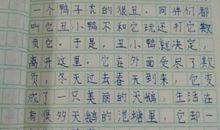 一个鸭子长的很丑。同伴们都
叫它丑小鸭不和它玩还打它欺
负它。于是，丑小鸭就决定，
离开这里。它在外面受尽了欺
负，冬天过去春天到来，它变
成了一只美丽的天鹅，生活在
有很多天鹅的池塘里，它却一